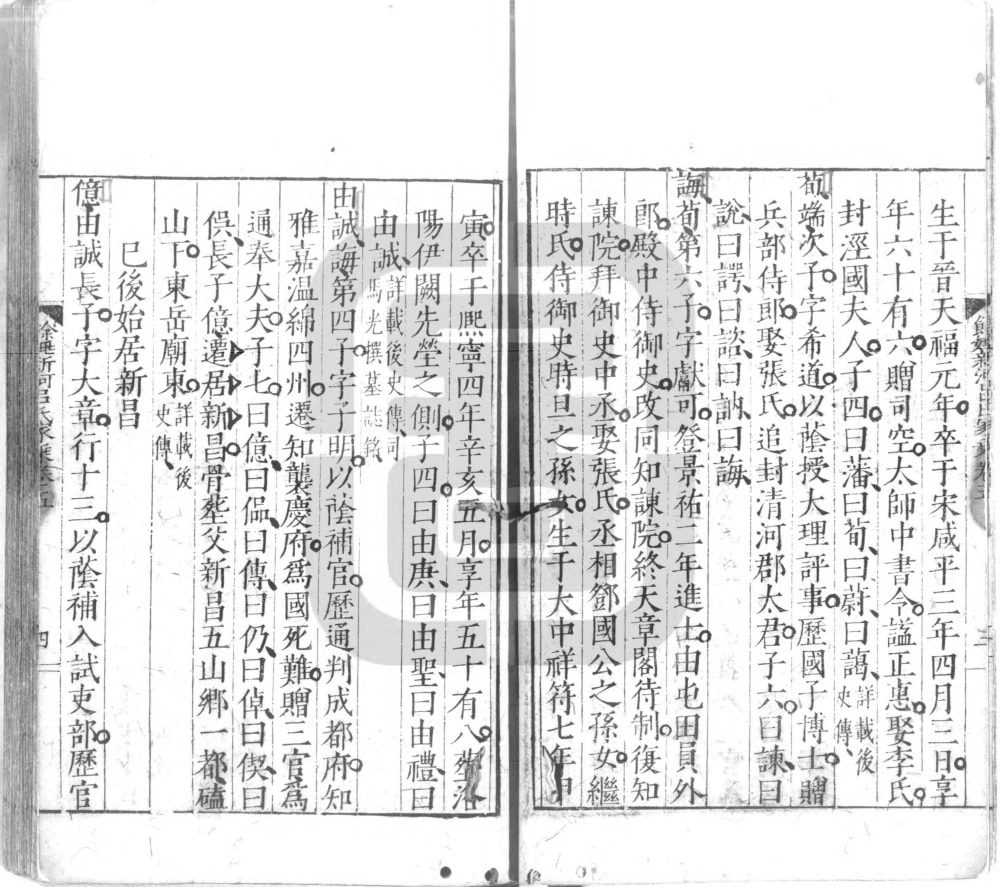 生于晉天福元年卒于宋咸平三年四月三日享
年六十有六贈司空太師中書令諡正惠娶李氏
封涇國夫人子四曰藩曰荀曰蔚曰藹詳載後史傳
荀端次子字希道以蔭授大理評事歷國子博士贈
兵部侍郎娶張氏追封清河郡太君子六曰諫曰
說曰諤曰諮曰訥曰誨
誨荀第六子字獻可登景祐二年進士由屯田員外
郎殿中侍御史改同知諫院終天章閣待制復知
諫院拜御史中丞娶張氏丞相鄧國公之孫女繼
時氏侍御史時旦之孫女生于大中祥符七年甲
餘姚新河呂氏家乘卷五
三
寅卒于熈寧四年辛亥五月享年五十有八葬洛
陽伊闕先塋之側子四曰由庚曰由聖曰由禮曰
由誠詳載後史傳司馬光撰墓誌銘
由誠誨第四子字子明以蔭補官歷通判成都府知
雅嘉温綿四州遷知襲慶府爲國死難贈三官爲
通奉大夫子七曰億曰偘曰傳曰仍曰倬曰偰曰
俁長子億遷居新昌骨塟父新昌五山鄉一都磕
山下東岳廟東詳載後史傳
巳後始居新昌
億由誠長子字大章行十三以蔭補入試吏部歷官
餘姚新河呂氏家乘卷五
四